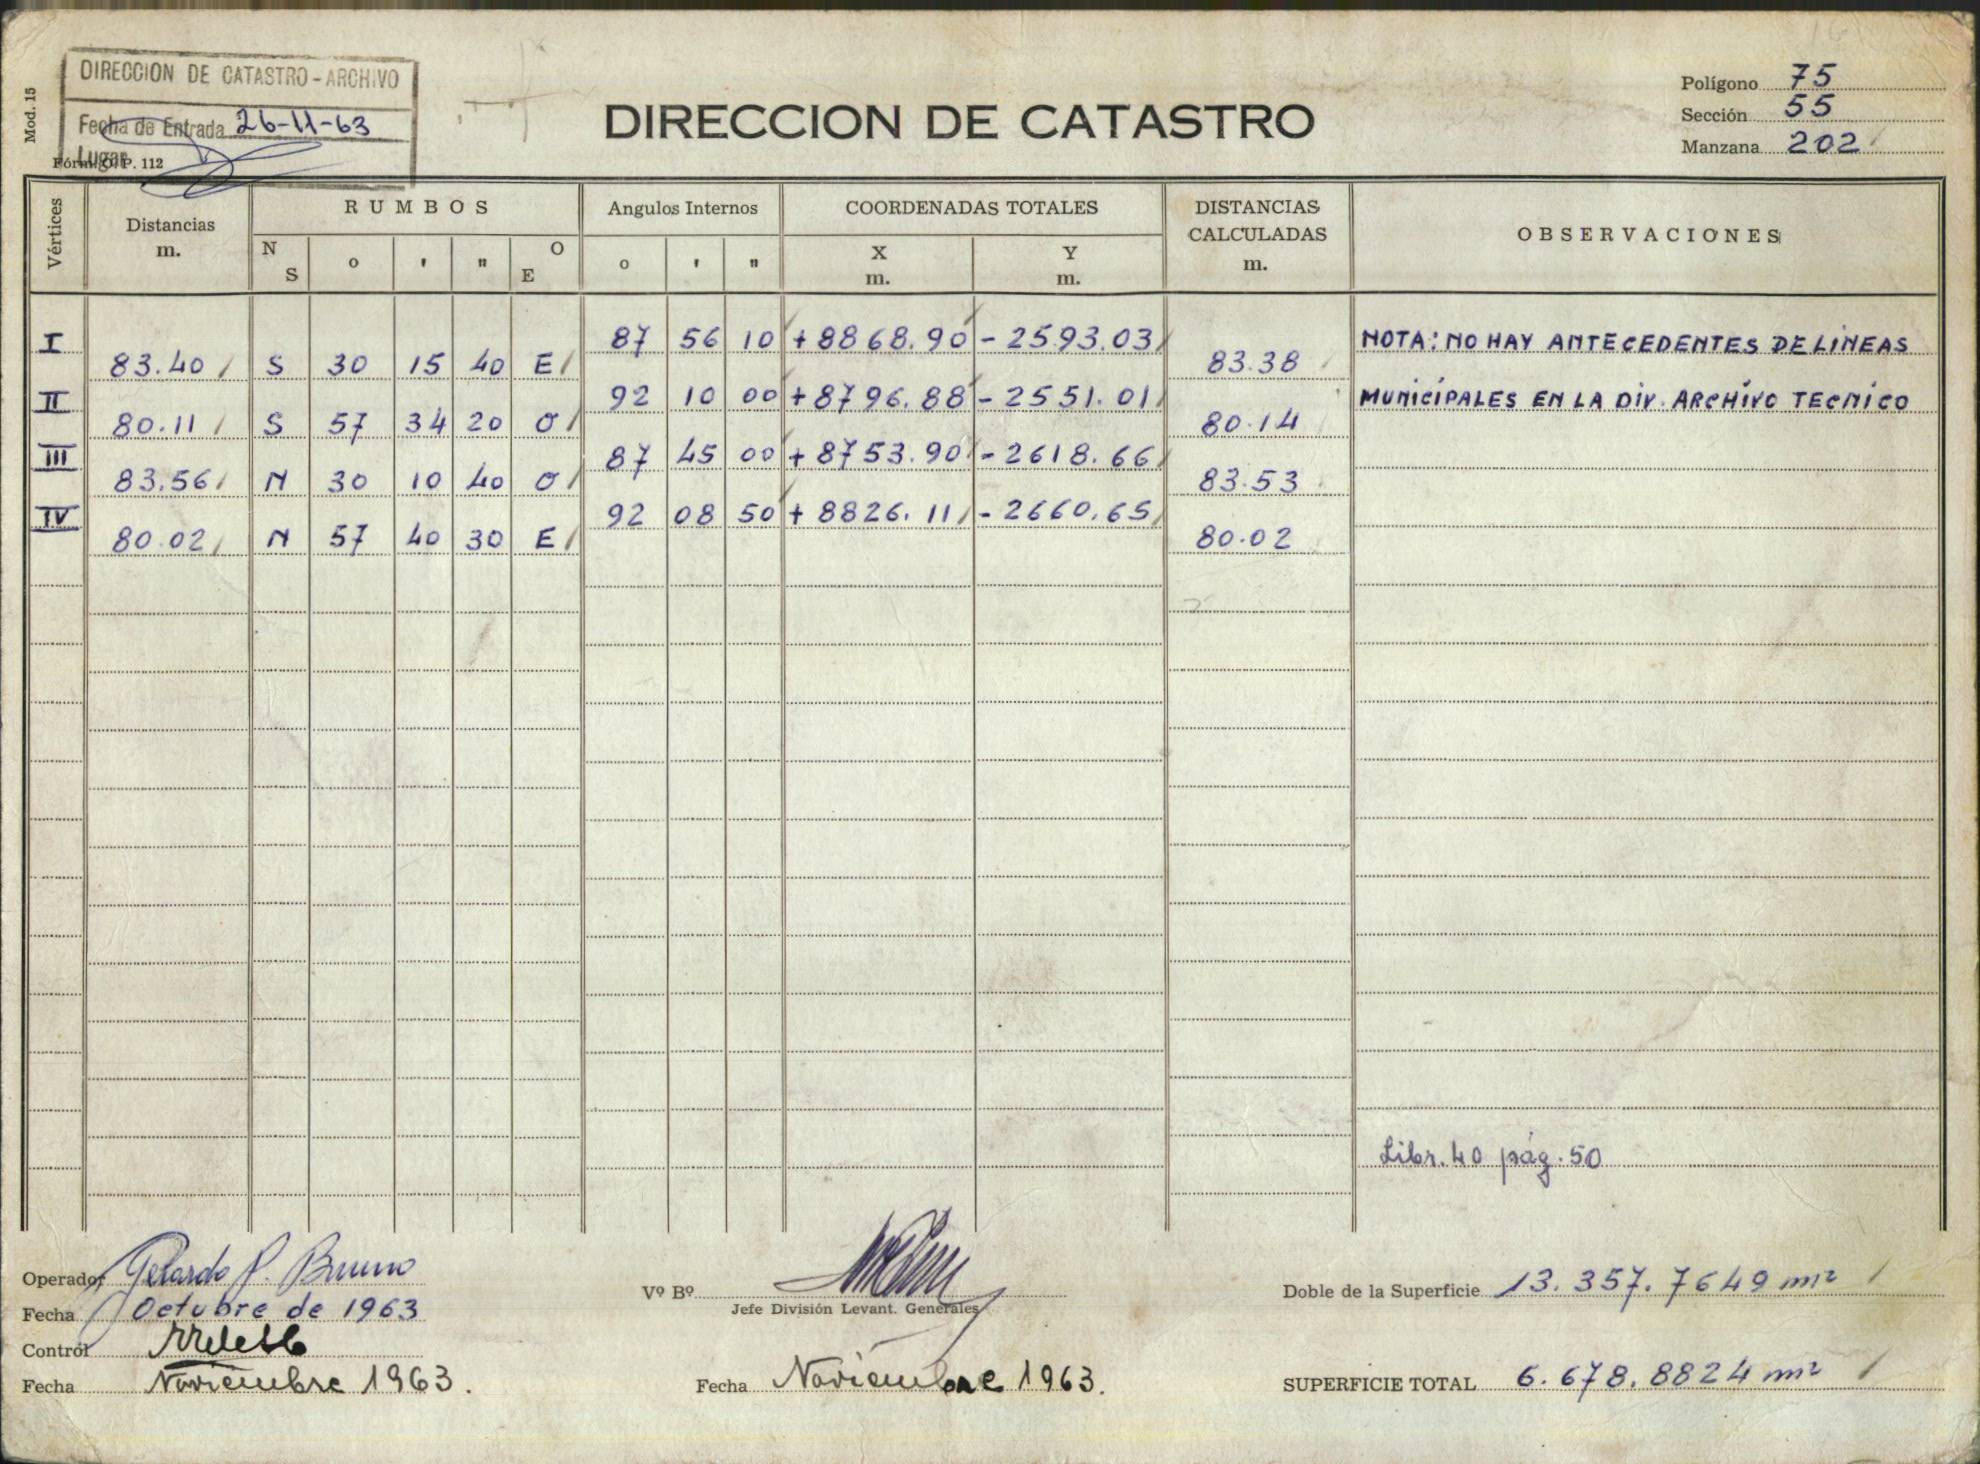 DIRECCION DE CATASTRO - ARCHIVO
Fecha de Entrada 26-11-63
Lugar
Mod. 15
Fórm. O. P. 112
DIRECCION DE CATASTRO
Polígono 75
Sección 55
Manzana 202
Vértices
Distancias m.
RUMBOS
N S o ' " O E
Angulos Internos
o ' "
COORDENADAS TOTALES
X m. Y m.
DISTANCIAS CALCULADAS m.
OBSERVACIONES
I 87 56 10 +8868.90 -2593.03 NOTA: NO HAY ANTECEDENTES DE LINEAS
83.40 S 30 15 40 E 83.38
II 92 10 00 +8796.88 -2551.01 MUNICIPALES EN LA DIV. ARCHIVO TECNICO
80.11 S 57 34 20 O 80.14
III 87 45 00 +8753.90 -2618.66
83.56 N 30 10 40 O 83.53
IV 92 08 50 +8826.11 -2660.65
80.02 N 57 40 30 E 80.02
Libr. 40 pág. 50
Operador Gerardo P. Bruno
Fecha Octubre de 1963
Contról
Fecha Noviembre 1963.
Vº Bº
Jefe División Levant. Generales
Fecha Noviembre 1963.
Doble de la Superficie 13.357.7649 m²
SUPERFICIE TOTAL 6.678.8824 m²